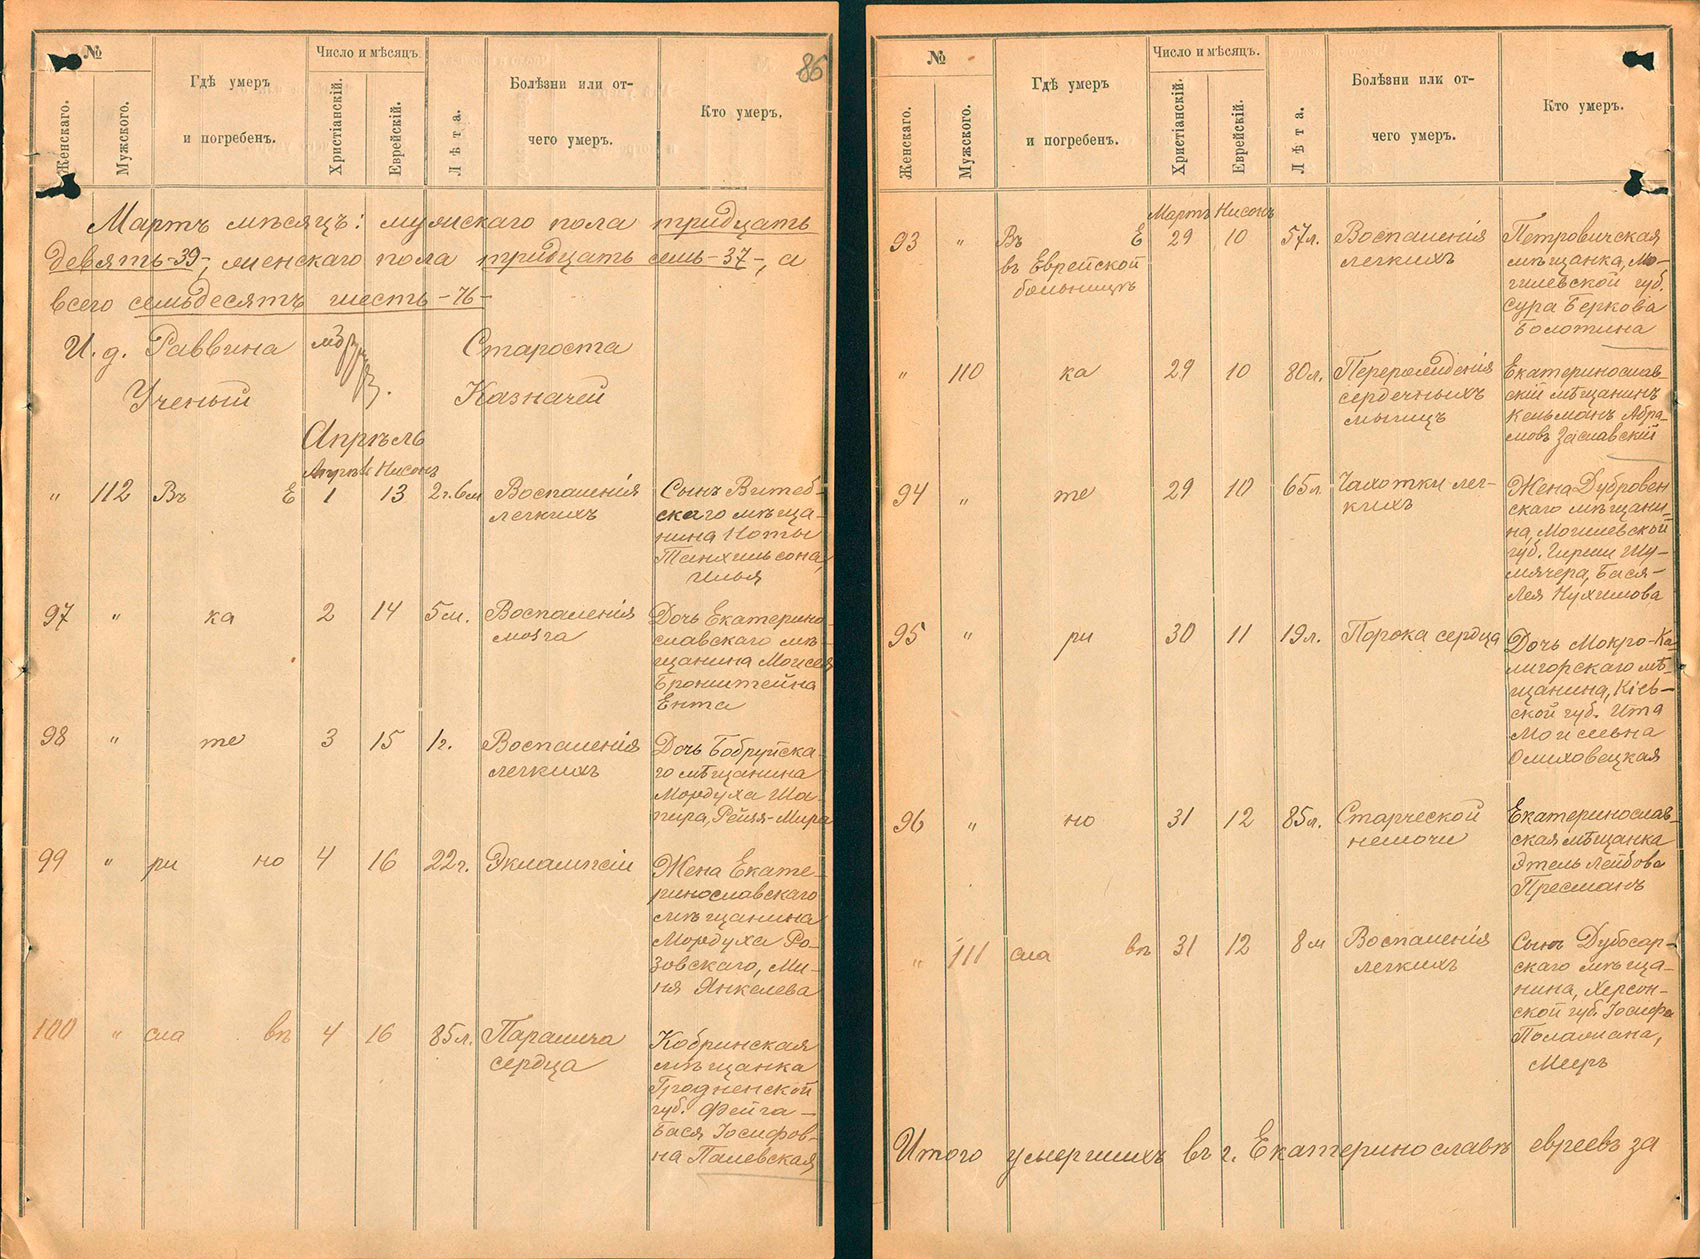 №
Женскаго.
Мужского.
Гдѣ умеръ
и погребенъ.
Число и мѣсяцъ.
Христіанскій.
Еврейскій.
Лѣта.
Болѣзни или от-
чего умеръ.
Кто умеръ.
86
Мартъ мѣсяцъ: мужскаго пола тридцать
девять-39-, женскаго пола тридцать семь-37-, а
всего семьдесятъ шесть-76-
И. д. Раввина Староста
Ученый Казначей
Апрѣль
Апрѣль Нисонъ
" 112 Въ Е 1 13 2г.6м Воспаленія
легкихъ
Сынъ Витеб-
скаго мѣща-
нина Ноты
Танхильсона,
Илья
97 " ка 2 14 5м. Воспаленія
мозга
Дочь Екатерино-
славскаго мѣ-
щанина Моисея
Бронштейна
Ента
98 " те 3 15 1г. Воспаленія
легкихъ
Дочь Бобруйска-
го мѣщанина
Мордуха Ша-
пира, Рейзя-Мира
99 " ри но 4 16 22г. Эклампсіи
Жена Екате-
ринославскаго
мѣщанина
Мордуха Ро-
зовскаго, Ми-
ня Янкелева
100 " сла вѣ 4 16 85л. Паралича
сердца
Кобринская
мѣщанка
Гродненской
губ. Фейга-
Бася Іосифов-
на Палевская
№
Женскаго.
Мужского.
Гдѣ умеръ
и погребенъ.
Число и мѣсяцъ.
Христіанскій.
Еврейскій.
Лѣта.
Болѣзни илк от-
чего умеръ.
Кто умеръ.
Мартъ Нисонъ
93 " Въ Е 29 10 57л. Воспаленія
въ Еврейской легкихъ
больницѣ
Петровичская
мѣщанка, Мо-
гилевской губ.
Сура Беркова
Болотина
" 110 ка 29 10 80л. Перерожденія
сердечныхъ
мышцъ
Екатеринослав-
скій мѣщанинъ
Кельманъ Абра-
мовъ Заславскій
94 " те 29 10 65л Чахотки лег-
кихъ
Жена Дубровен
скаго мѣщани-
на, Могилевской
губ. Гирши Шу-
мячера, Бася-
Лея Нухимова
95 " ри 30 11 19л. Порока сердца
Дочь Мокро-Ка-
лигорскаго мѣ-
щанина, Кіев-
ской губ. Ита
Моисеевна
Олиховецкая
96 " но 31 12 85л. Старческой
немочи
Екатеринослав-
ская мѣщанка
Этель Лейбова
Пресманъ
" 111 сла вѣ 31 12 8м Воспаленія
легкихъ
Сынъ Дубосар-
скаго мѣща-
нина, Херсон-
ской губ. Іосифа
Мееръ
Итого умершихъ въ г. Екатеринославѣ евреевъ за